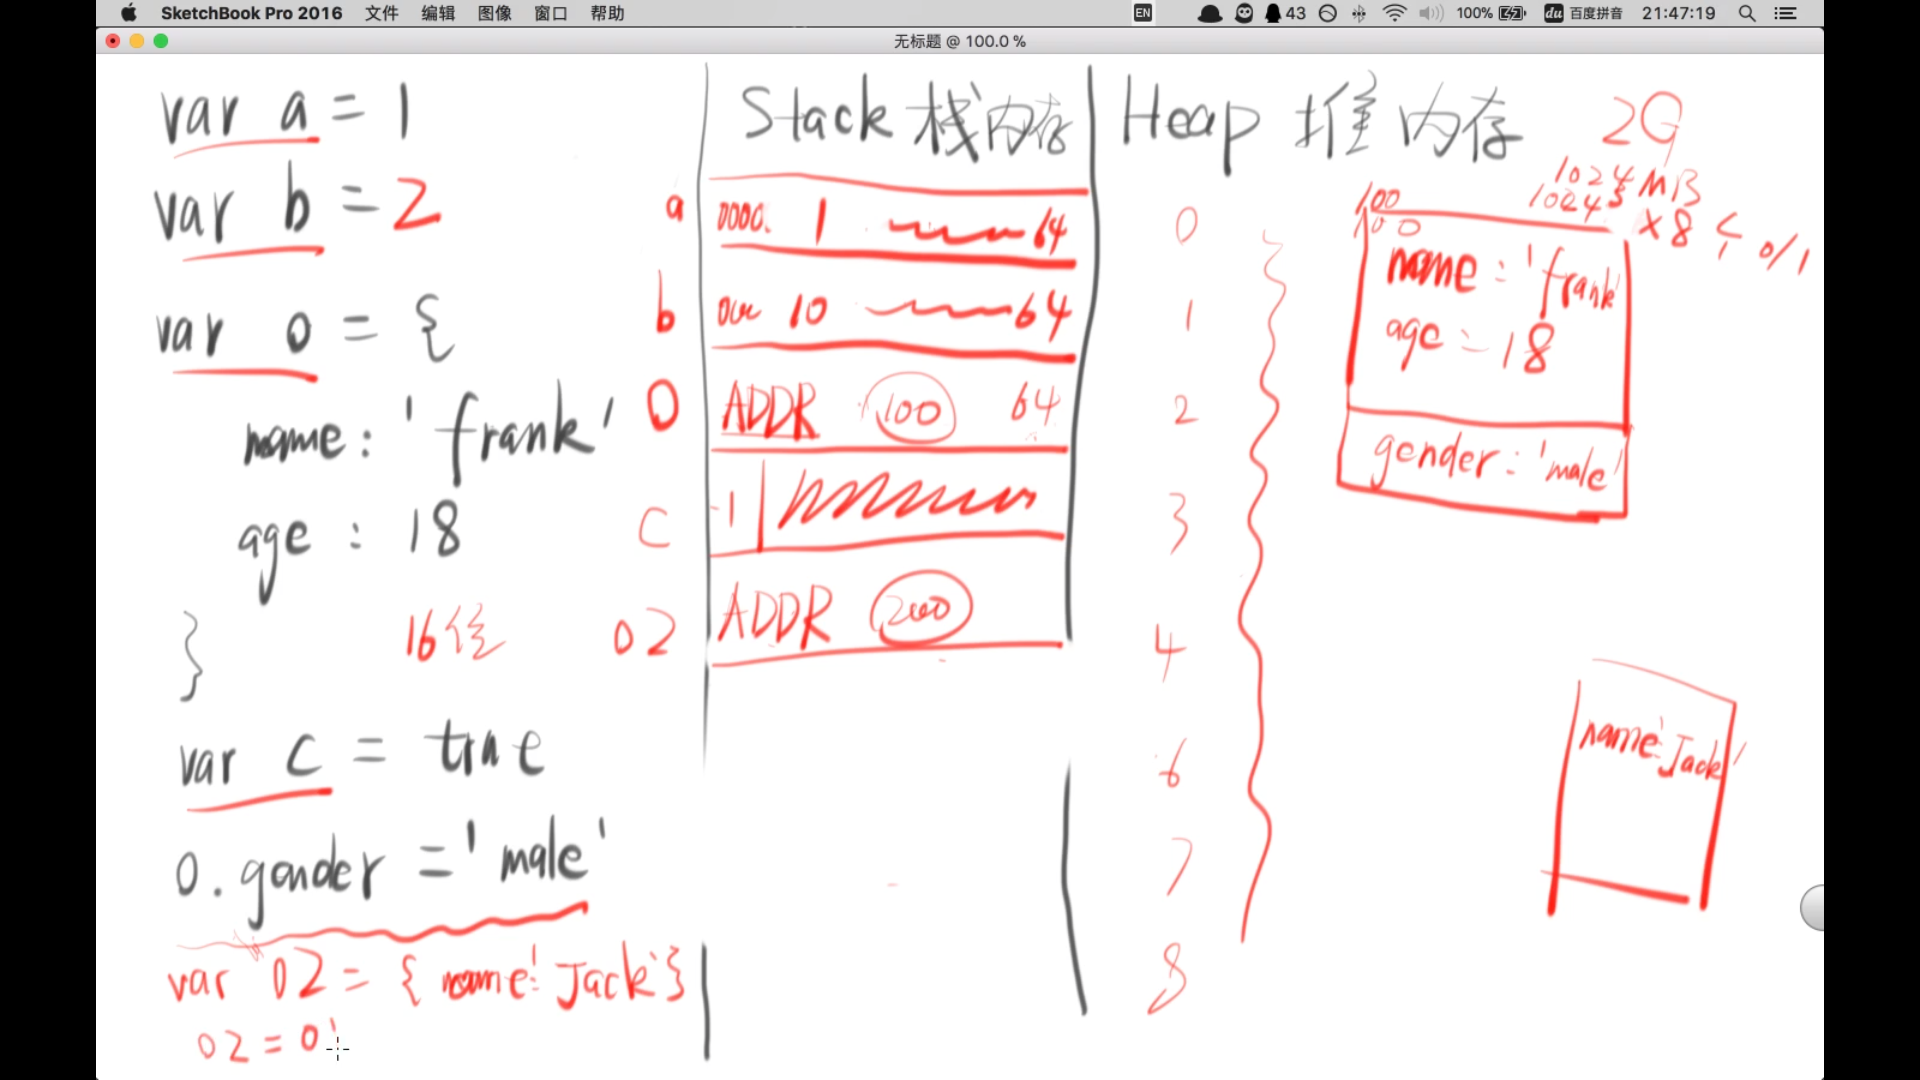 SketchBook Pro 2016 文件 编辑 图像 窗口 帮助 EN 43 100% du 百度拼音 21:47:19
无标题 @ 100.0 %
var a = 1
var b = 2
var o = {
name: 'frank'
age : 18
}
16位
var c = true
o.gender = 'male'
var o2 = { name: 'Jack' }
o2 = o
Stack 栈内存
a 0000. 1 64
b 10 64
O ADDR 100 64
C 1
o2 ADDR 200
Heap 堆内存
2G
1024 MB
1024
×8 0/1
0
1
2
3
4
6
7
8
100
100
name : 'frank'
age : 18
gender : 'male'
name: 'Jack'